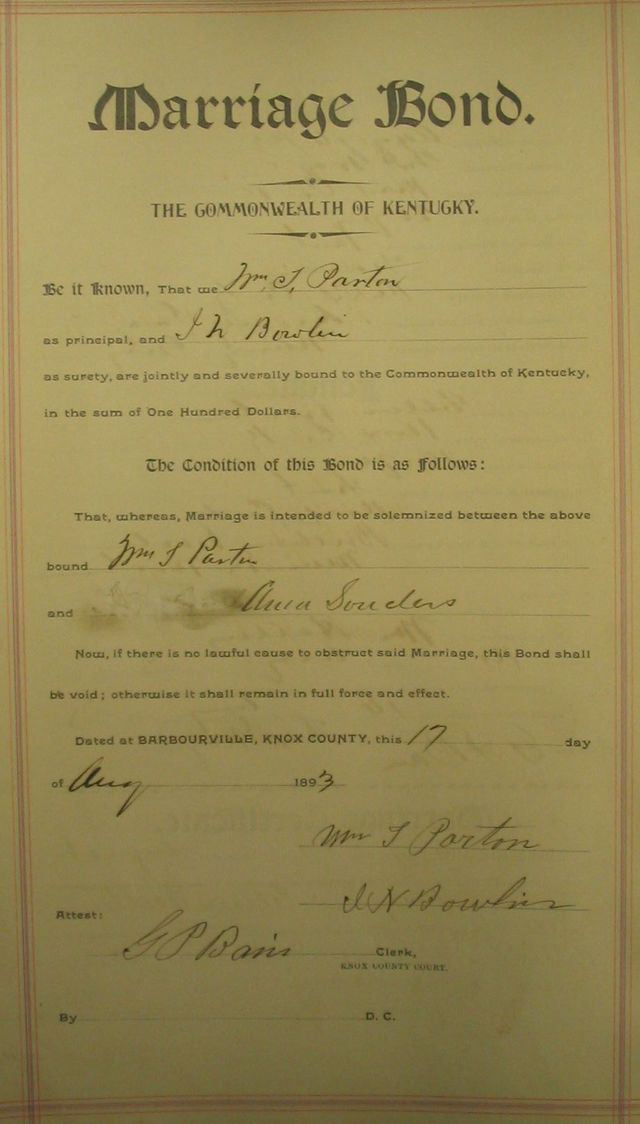 Marriage Bond.
THE COMMONWEALTH OF KENTUCKY.
Be it known, That we Wm. S. Parton
as principal, and J N Bowlin
as surety, are jointly and severally bound to the Commonwealth of Kentucky,
in the sum of One Hundred Dollars.
The Condition of this Bond is as Follows:
That, whereas, Marriage is intended to be solemnized between the above
bound Wm S Parton
and Anna Souders
Now, if there is no lawful cause to obstruct said Marriage, this Bond shall
be void; otherwise it shall remain in full force and effect.
Dated at BARBOURVILLE, KNOX COUNTY, this 17 day
of Aug 1893
Wm S Parton
J N Bowlin
Attest:
G P Bain Clerk,
KNOX COUNTY COURT.
By D. C.